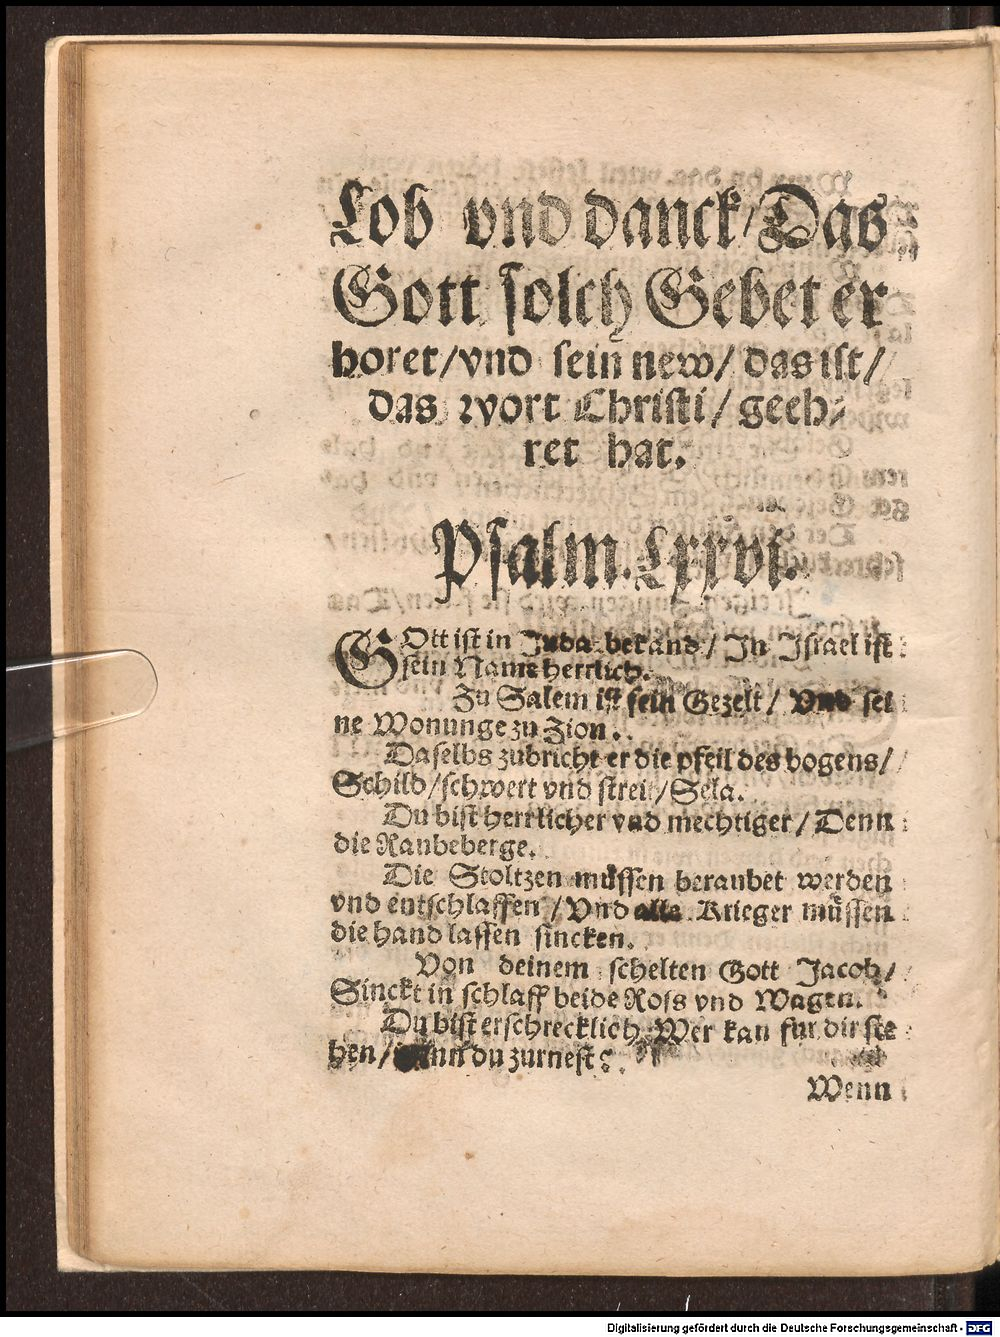 Lob vnd danck/Das
Gott solch Gebet er
horet/vnd sein new/ das ist/
das wort Christi/ geeh⸗
ret hat.
Psalm. Lxxvi.
GOtt ist in Juda bekand/ In Israel ist
sein Name herrlich.
Zu Salem ist sein Gezelt/ Vnd sei
ne Wonunge zu Zion.
Daselbs zubricht er die pfeil des bogens/
Schild/schwert vnd streit/Sela.
Du bist herrlicher vnd mechtiger/ Denn
die Raubeberge.
Die Stoltzen müssen beraubet werden
vnd entschlaffen/Vnd alle Krieger müssen
die hand lassen sincken.
Von deinem schelten Gott Jacob/
Sinckt in schlaff beide Ross vnd Wagen.
Du bist erschrecklich, Wer kan fur dir ste
hen/ wenn du zurnest?
Wenn
Digitalisierung gefördert durch die Deutsche Forschungsgemeinschaft - DFG